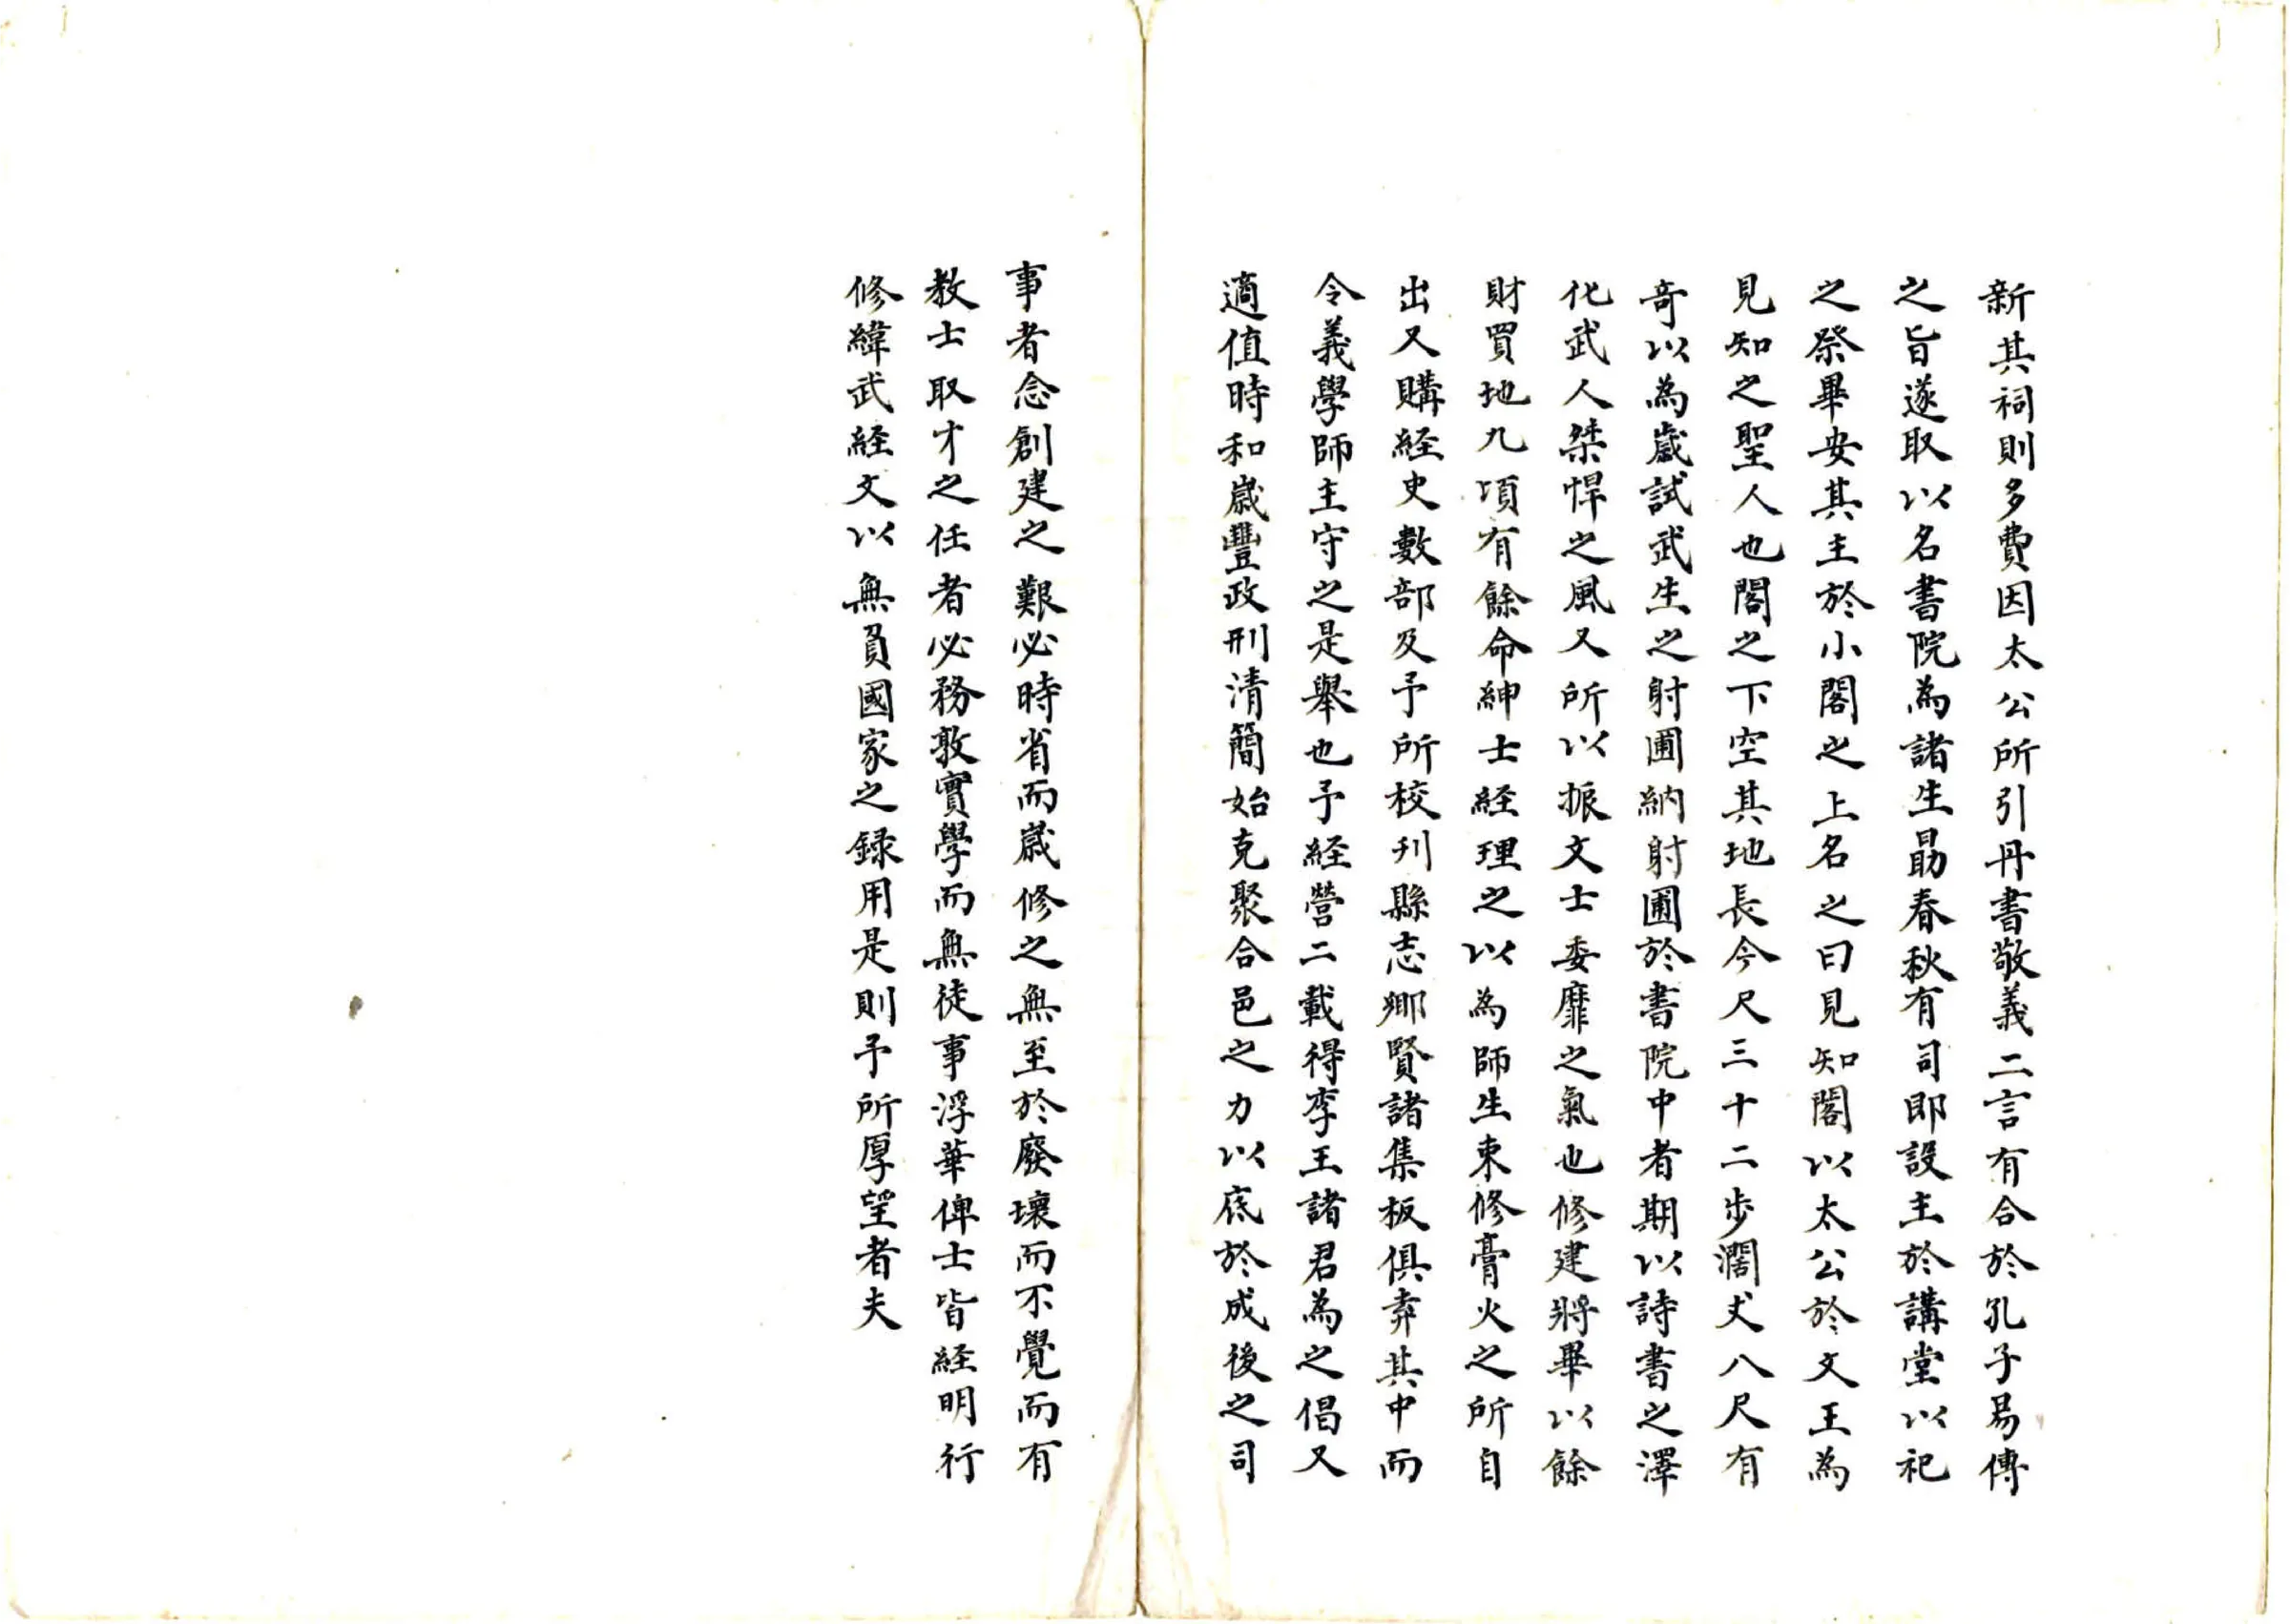 新其祠則多費因太公所引丹書敬義二言有合於孔子易傳
之旨遂取以名書院為諸生勗春秋有司即設主於講堂以祀
之祭畢安其主於小閣之上名之曰見知閣以太公於文王為
見知之聖人也閣之下空其地長今尺三十二步濶丈八尺有
奇以為歲試武生之射圃納射圃於書院中者期以詩書之澤
化武人桀悍之風又所以振文士委靡之氣也修建將畢以餘
財買地九項有餘命紳士経理之以為師生束修膏火之所自
出又購経史數部及予所校刋縣志鄉賢諸集板俱弆其中而
令義學師主守之是舉也予経營二載得李王諸君為之倡又
適值時和歲豐政刑清簡始克聚合邑之力以底於成後之司
事者念創建之艱必時省而歲修之無至於廢壞而不覺而有
教士取才之任者必務敦實學而無徒事浮華俾士皆経明行
修緯武経文以無負國家之録用是則予所厚望者夫